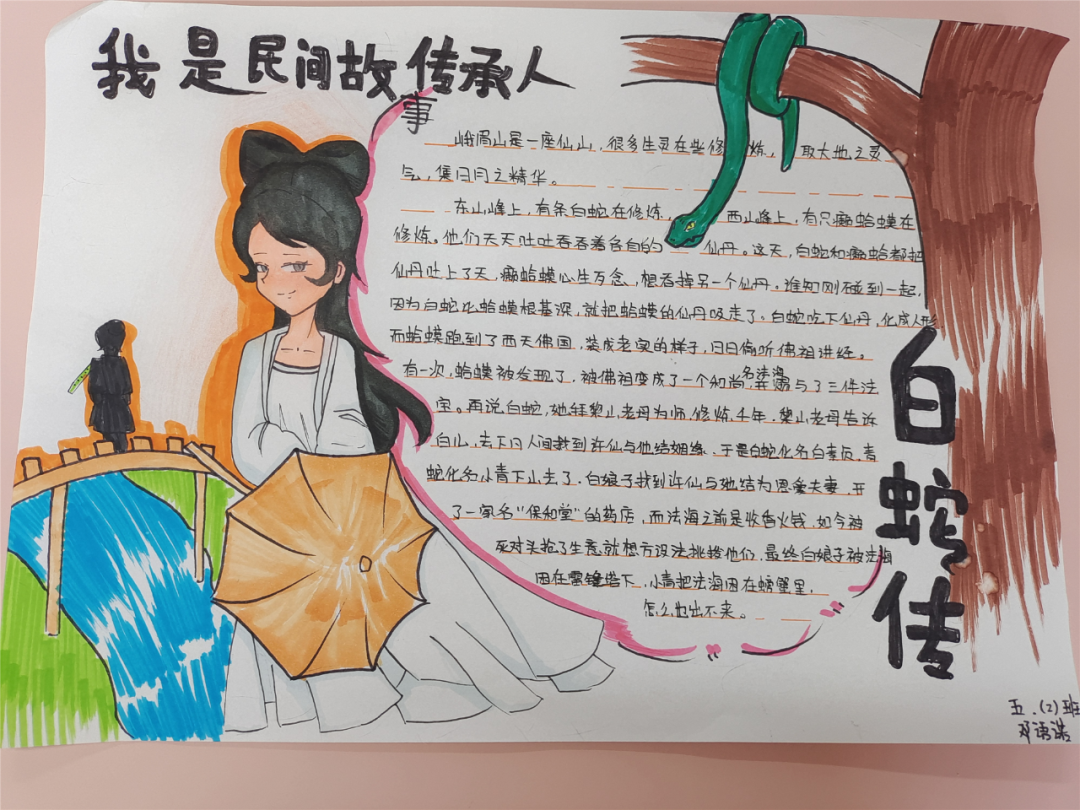 我是民间故事传承人
峨眉山是一座仙山，很多生灵在些修炼，取大地之灵
气，集日月之精华。
东山峰上，有条白蛇在修炼，西山峰上，有只癞蛤蟆在
修炼。他们天天吐吐吞吞着各自的仙丹。这天，白蛇和癞蛤都把
仙丹吐上了天，癞蛤蟆心生歹念，想吞掉另一个仙丹。谁知刚碰到一起，
因为白蛇比蛤蟆根基深，就把蛤蟆的仙丹吸走了。白蛇吃下仙丹，化成人形
而蛤蟆跑到了西天佛国，装成老实的样子，日日偷听佛祖讲经。
有一次，蛤蟆被发现了，被佛祖变成了一个和尚名法海，并赐与了三件法
宝。再说白蛇，她拜黎山老母为师，修炼千年，黎山老母告诉
白儿，去下凡人间找到许仙与他结姻缘，于是白蛇化名白素贞，青
蛇化名小青下山去了。白娘子找到许仙与她结为恩爱夫妻，开
了一家名“保和堂”的药店，而法海之前是收香火钱，如今被
死对头抢了生意就想方设法挑拨他们，最终白娘子被法海
困在雷锋塔下，小青把法海困在螃蟹里，
怎么也出不来。
白蛇传
五.(2)班
邓语诺